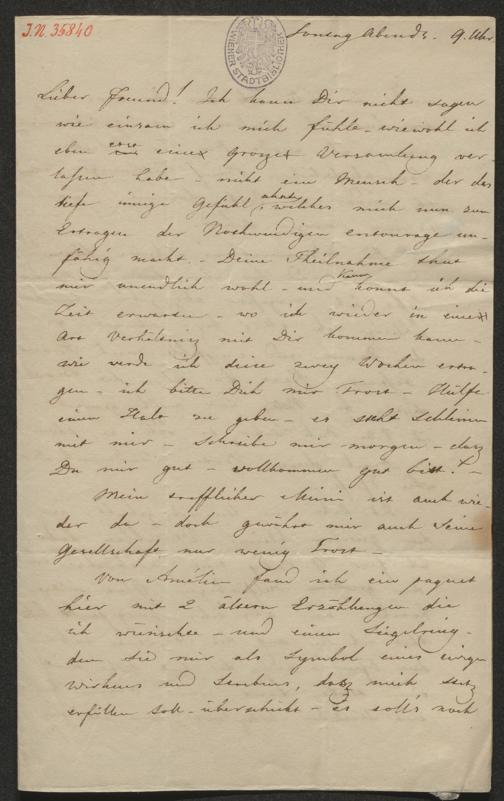 J.N. 35840
WIENER STADTBIBLIOTHEK
Sonntag Abends. 9. Uhr
Lieber Freund! Ich kann Dir nicht sagen
wie einsam ich mich fühle – wiewohl ich
eben eine große Versamlung ver-
lassen habe – nicht ein Mensch – der das
tiefe innige Gefühl ahnte, welches mich nun zum
Ertragen der Nothwendigen entourage un-
fähig macht. – Deine Theilnahme thut
mir unendlich wohl – und kaum konnt ich die
Zeit erwarten – wo ich wieder in eine
Art Verhältniß mit Dir kommen kann –
wie werde ich diese zwey Wochen ertra-
gen – ich bitte Dich mir Trost – Hülfe
einen Halt zu geben – es steht schlimm
mit mir – schreibe mir morgen – daß
Du mir gut – vollkommen gut bist! –
Mein trefflicher Mimi ist auch wie-
der da – doch gewährt mir auch seine
Gesellschaft nur wenig Trost –
Von Amélie fand ich ein paquet
hier mit 2 ältern Erzählungen die
ich wünschte – und einen Siegelring –
den sie mir als Symbol eines ewigen
Wirkens und Strebens, das mich stets
erfüllen soll – überschickt – es soll's noch